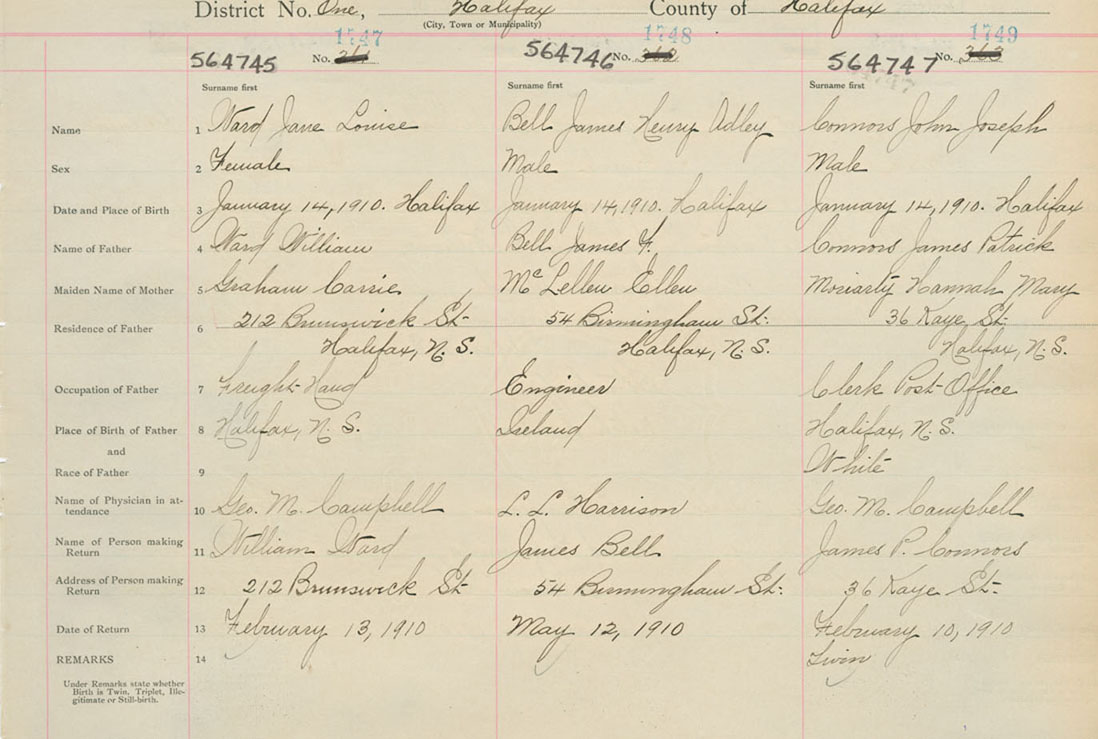 District No. One, Halifax County of Halifax
(City, Town or Municipality)
1747 1748 1749
564745 No. 564746 No. 564747 No.
Surname first Surname first Surname first
Name 1 Ward Jane Louise Bell James Henry Adley Connors John Joseph
Sex 2 Female Male Male
Date and Place of Birth 3 January 14, 1910. Halifax January 14, 1910. Halifax January 14, 1910. Halifax
Name of Father 4 Ward William Bell James F. Connors James Patrick
Maiden Name of Mother 5 Graham Carrie McLellen Ellen Moriarty Hannah Mary
Residence of Father 6 212 Brunswick St. 54 Birmingham St. 36 Kaye St.
Halifax, N.S. Halifax, N.S. Halifax, N.S.
Occupation of Father 7 Freight-Hand Engineer Clerk Post-Office
Place of Birth of Father 8 Halifax, N.S. Ireland Halifax, N.S.
and
Race of Father 9 White
Name of Physician in at-
tendance 10 Geo. M. Campbell L. L. Harrison Geo. M. Campbell
Name of Person making
Return 11 William Ward James Bell James P. Connors
Address of Person making
Return 12 212 Brunswick St. 54 Birmingham St. 36 Kaye St.
Date of Return 13 February 13, 1910 May 12, 1910 February 10, 1910
REMARKS 14 Twin
Under Remarks state whether
Birth is Twin, Triplet, Ille-
gitimate or Still-birth.